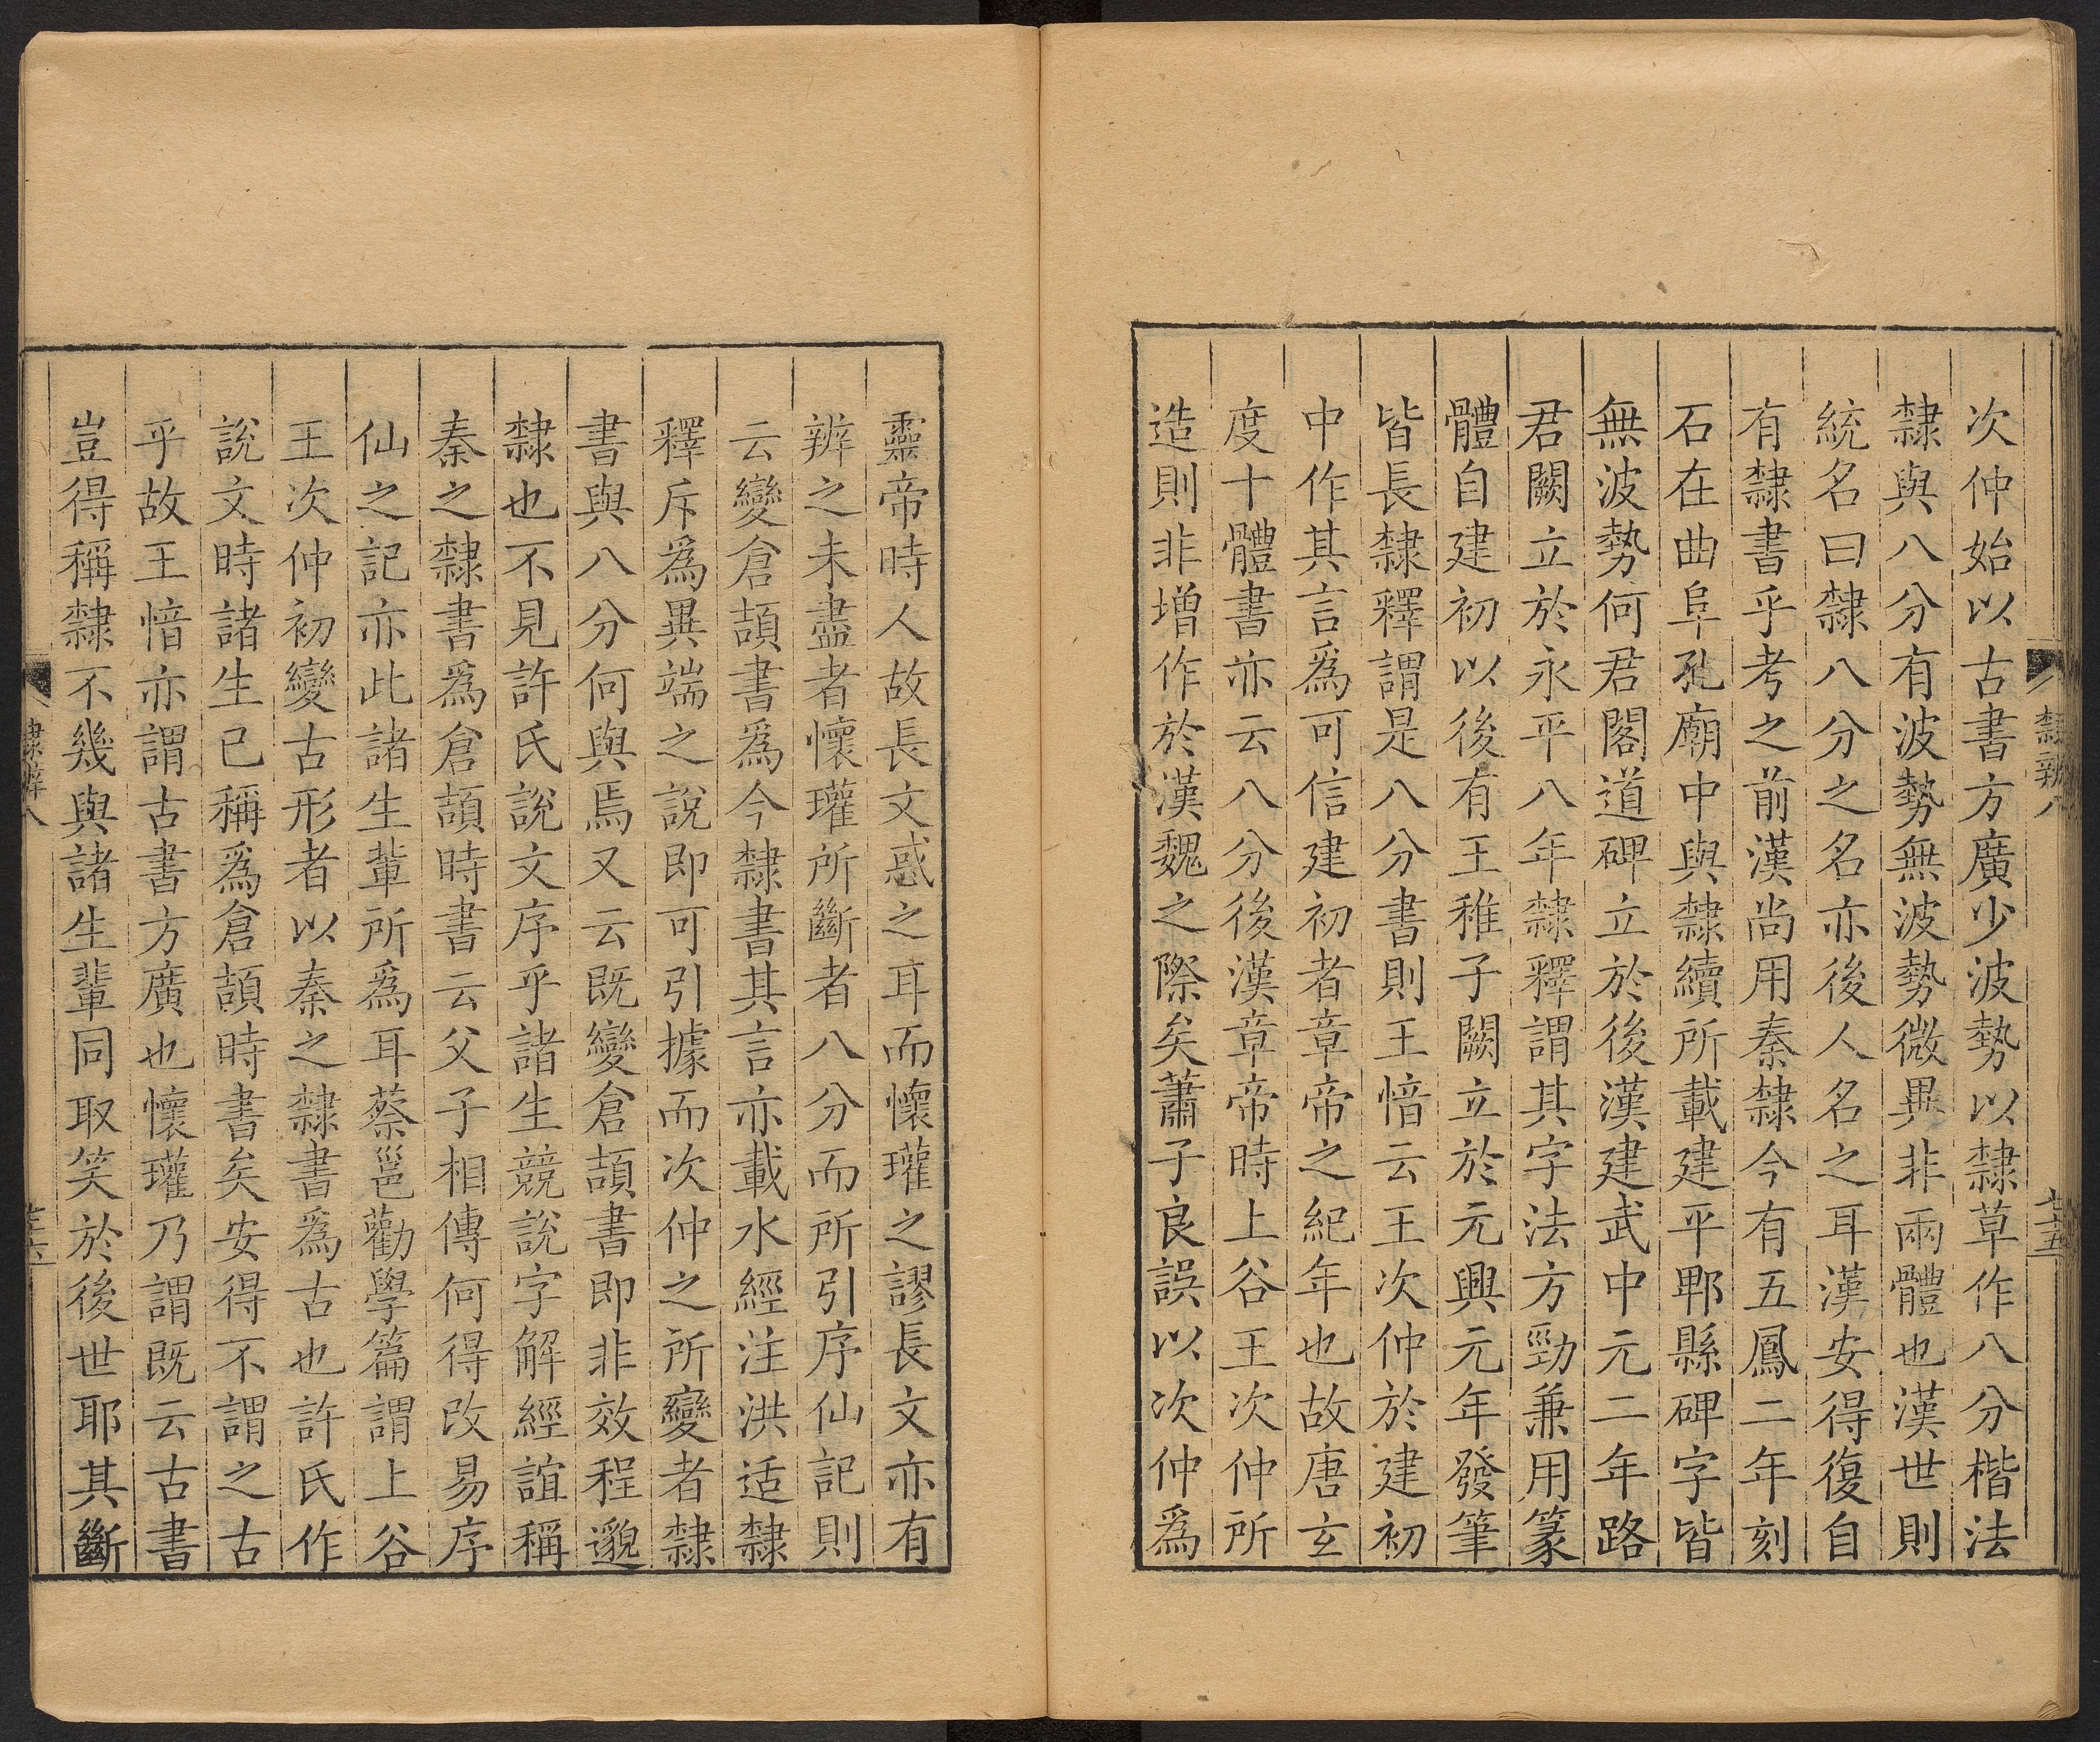 隸辨八
廿五
次仲始以古書方廣少波勢以隸草作八分楷法
隸與八分有波勢無波勢微異非兩體也漢世則
統名曰隸八分之名亦後人名之耳漢安得復自
有隸書乎考之前漢尚用秦隸今有五鳳二年刻
石在曲阜孔廟中與隸續所載建平郫縣碑字皆
無波勢何君閣道碑立於後漢建武中元二年路
君闕立於永平八年隸釋謂其字法方勁兼用篆
體自建初以後有王稚子闕立於元興元年發筆
皆長隸釋謂是八分書則王愔云王次仲於建初
中作其言爲可信建初者章帝之紀年也故唐玄
度十體書亦云八分後漢章帝時上谷王次仲所
造則非增作於漢魏之際矣蕭子良誤以次仲爲
靈帝時人故長文惑之耳而懷瓘之謬長文亦有
辨之未盡者懷瓘所斷者八分而所引序仙記則
云變倉頡書爲今隸書其言亦載水經注洪适隸
釋斥爲異端之說即可引據而次仲之所變者隸
書與八分何與焉又云既變倉頡書即非效程邈
隸也不見許氏說文序乎諸生競說字解經誼稱
秦之隸書爲倉頡時書云父子相傳何得改易序
仙之記亦此諸生輩所爲耳蔡邕勸學篇謂上谷
王次仲初變古形者以秦之隸書爲古也許氏作
說文時諸生已稱爲倉頡時書矣安得不謂之古
乎故王愔亦謂古書方廣也懷瓘乃謂既云古書
豈得稱隸不幾與諸生輩同取笑於後世耶其斷
隸辨八